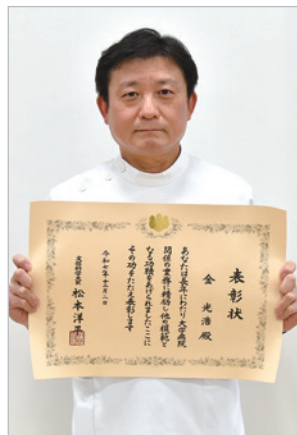 表彰状
金光浩殿
あなたは長年にわたり大学病院
関係の業務に精励し他の模範と
なる功績をあげられましたここに
その功をたたえ表彰します
令和七年十一月二日
文部科学大臣 松本洋平